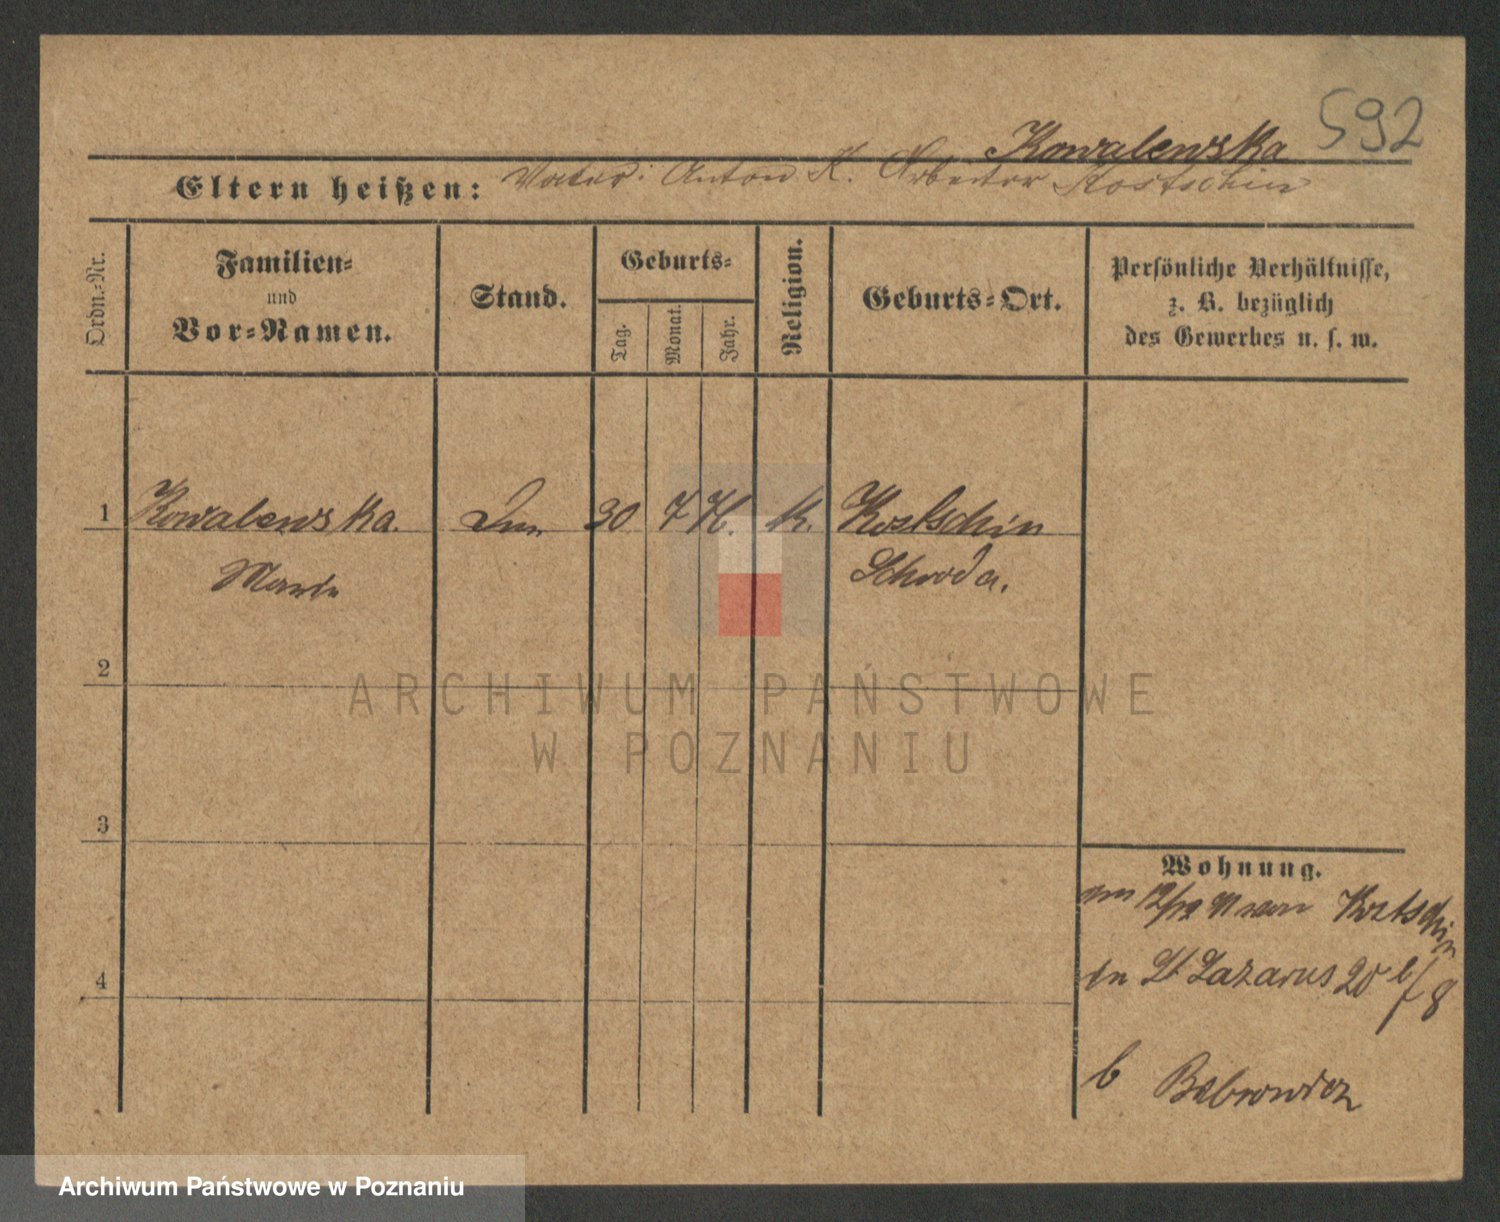 592
Kowalewska
Eltern heißen: Vater: Anton K. Arbeiter Kostschin
Ordn.-Nr.
Familien-
und
Vor-Namen.
Stand.
Geburts-
Tag.
Monat.
Jahr.
Religion.
Geburts-Ort.
Persönliche Verhältnisse,
z. B. bezüglich
des Gewerbes u. s. w.
1 Kowalewska. 30 7 K. Kostschin
Schroda.
2
ARCHIWUM PAŃSTWOWE
W POZNANIU
3
Wohnung.
am 12/12 91 von Kostschin
in St Lazarus 20 b/8
4
b Bebrowicz
Archiwum Państwowe w Poznaniu